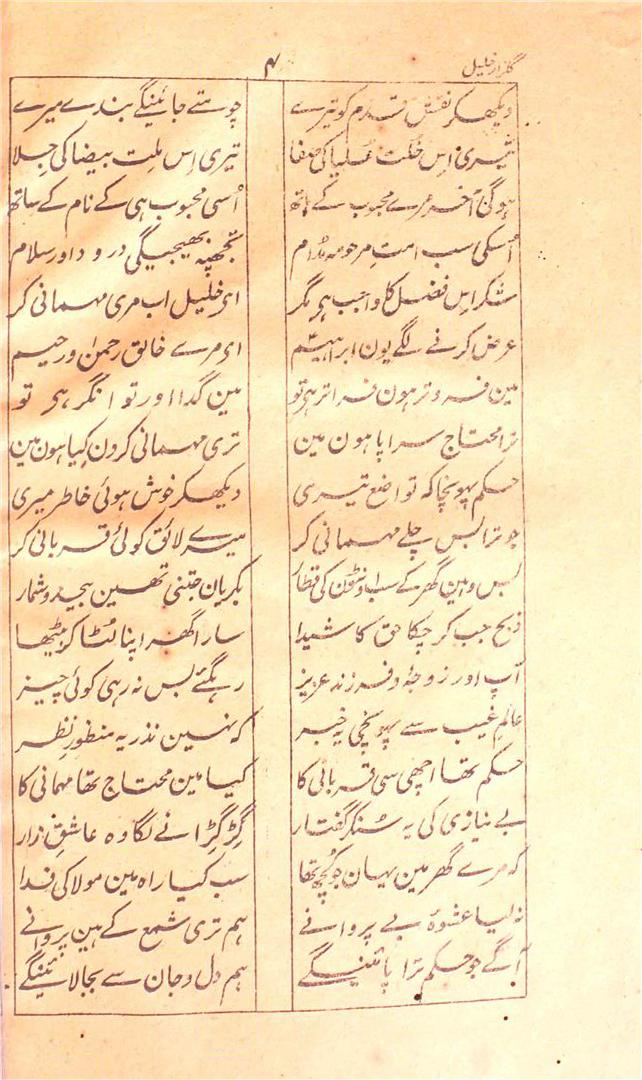 گلزار خلیل
۴
دیکھکر نقش قدم کو تیرے چومتے جائینگے بندے میرے
تیری اس خلت علیا کی صفا تیری اس ملت بیضا کی جلا
ہوگی آخر مرے محبوب کے ہاتھ اسی محبوب ہی کے نام کے ساتھ
اسکی سب امت مرحومہ مدام تجھپہ بھیجیگی درود اور سلام
شکر اس فضل کا واجب ہی مگر ای خلیل اب مری مہمانی کر
عرض کرنے لگے یون ابراہیم ای مرے خالق رحمن و رحیم
مین فروتر ہون فراتر ہی تو مین گدا اور توانگر ہی تو
ترا محتاج سراپا ہون مین تری مہمانی کرون کیا ہون مین
حکم پہونچا کہ تواضع تیری دیکھکر خوش ہوئی خاطر میری
جو ترا بس چلے مہمانی کر میرے لائق کوئی قربانی کر
بس وہین گھر کے سب اونٹون کی قطار بکریان جتنی تھین بیحد و شمار
ذبح جب کر چکا حق کا شیدا سارا گھر اپنا لٹا کر بیٹھا
آپ اور زوجہ و فرزند عزیز رہگئے بس نہ رہی کوئی چیز
عالم غیب سے پہونچی یہ خبر کہ نہین نذر یہ منظور نظر
حکم تھا اچھی سی قربانی کا کیا مین محتاج تھا مہمانی کا
بے نیازی کی یہ سنکر گفتار گڑگڑانے لگا وہ عاشق زار
کہ مرے گھر مین یہان جو کچھ تھا سب کیا راہ مین مولا کی فدا
نہ لیا عشوۂ بے پروا نے ہم تری شمع کے ہین پروانے
آگے جو حکم ترا پائینگے ہم دل و جان سے بجا لائینگے